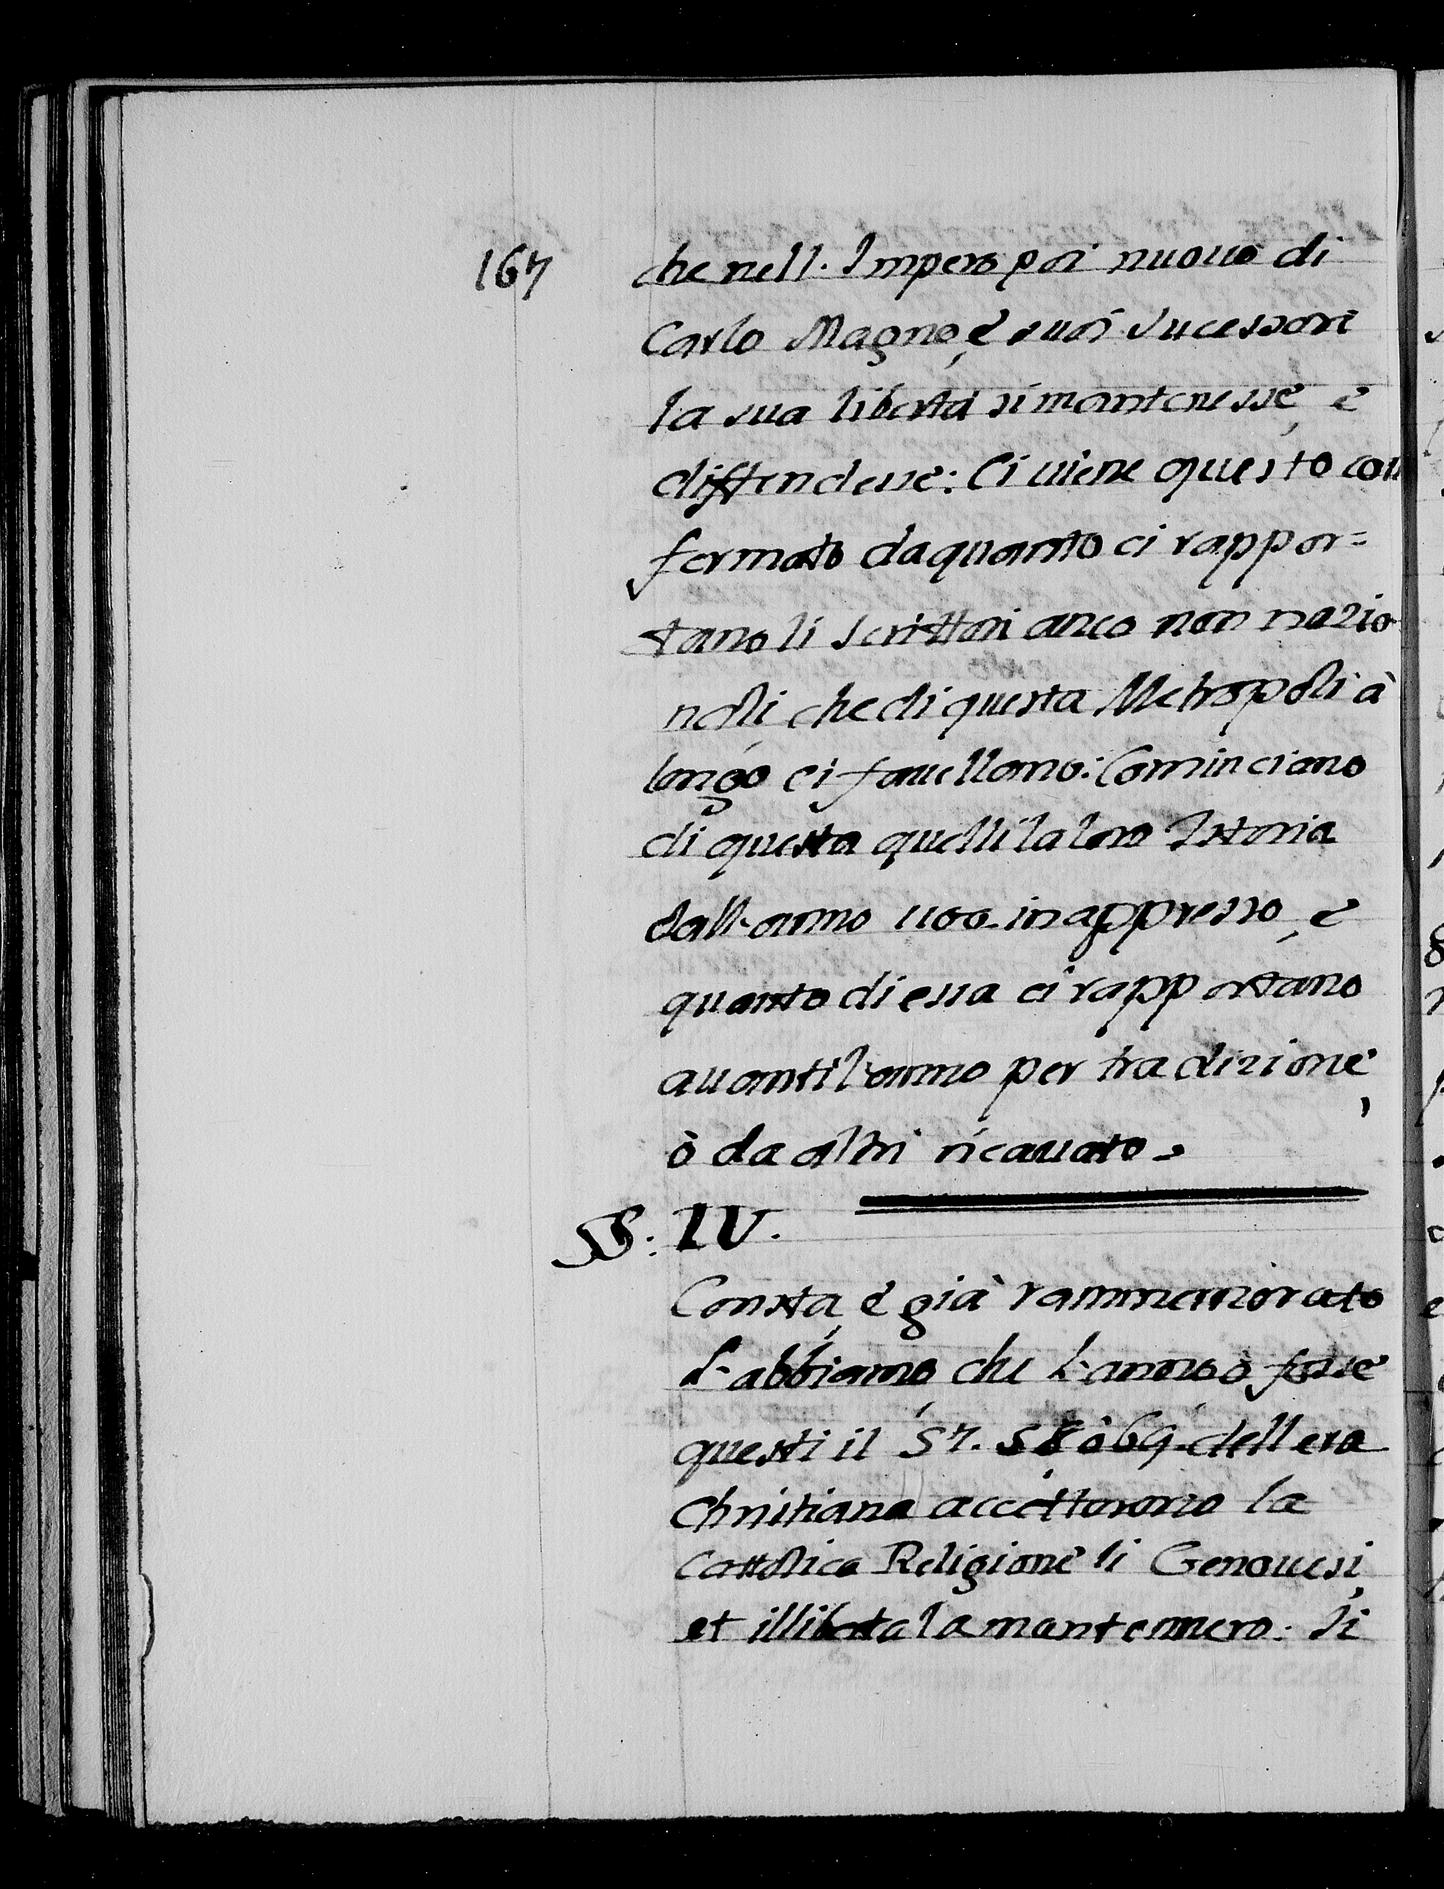 167
che nell. Impero poi nuouo di
Carlo Magno, è suoi Sucessori
la sua libertà si mantenesse, e
diffendesse: Ci uiene questo con
fermato da quanto ci rappor=
tano li Scrittori anco non nazio
nali che di questa Metropoli à
longo ci fauellano: Cominciano
di questa quelli la loro Istoria
dall. anno 1100. in appresso, e
quanto di essa ci rapportano
auanti l'anno per tradizione,
ò da altri ricauato.
§§: IV.
Consta, è già rammemorato
l'abbiamo, che l'anno ò fosse
questi il 57. 58 ò 69. dell era
Christiana accettorono la
Cattolica Religione li Genouesi,
et illibata la mantennero. Si